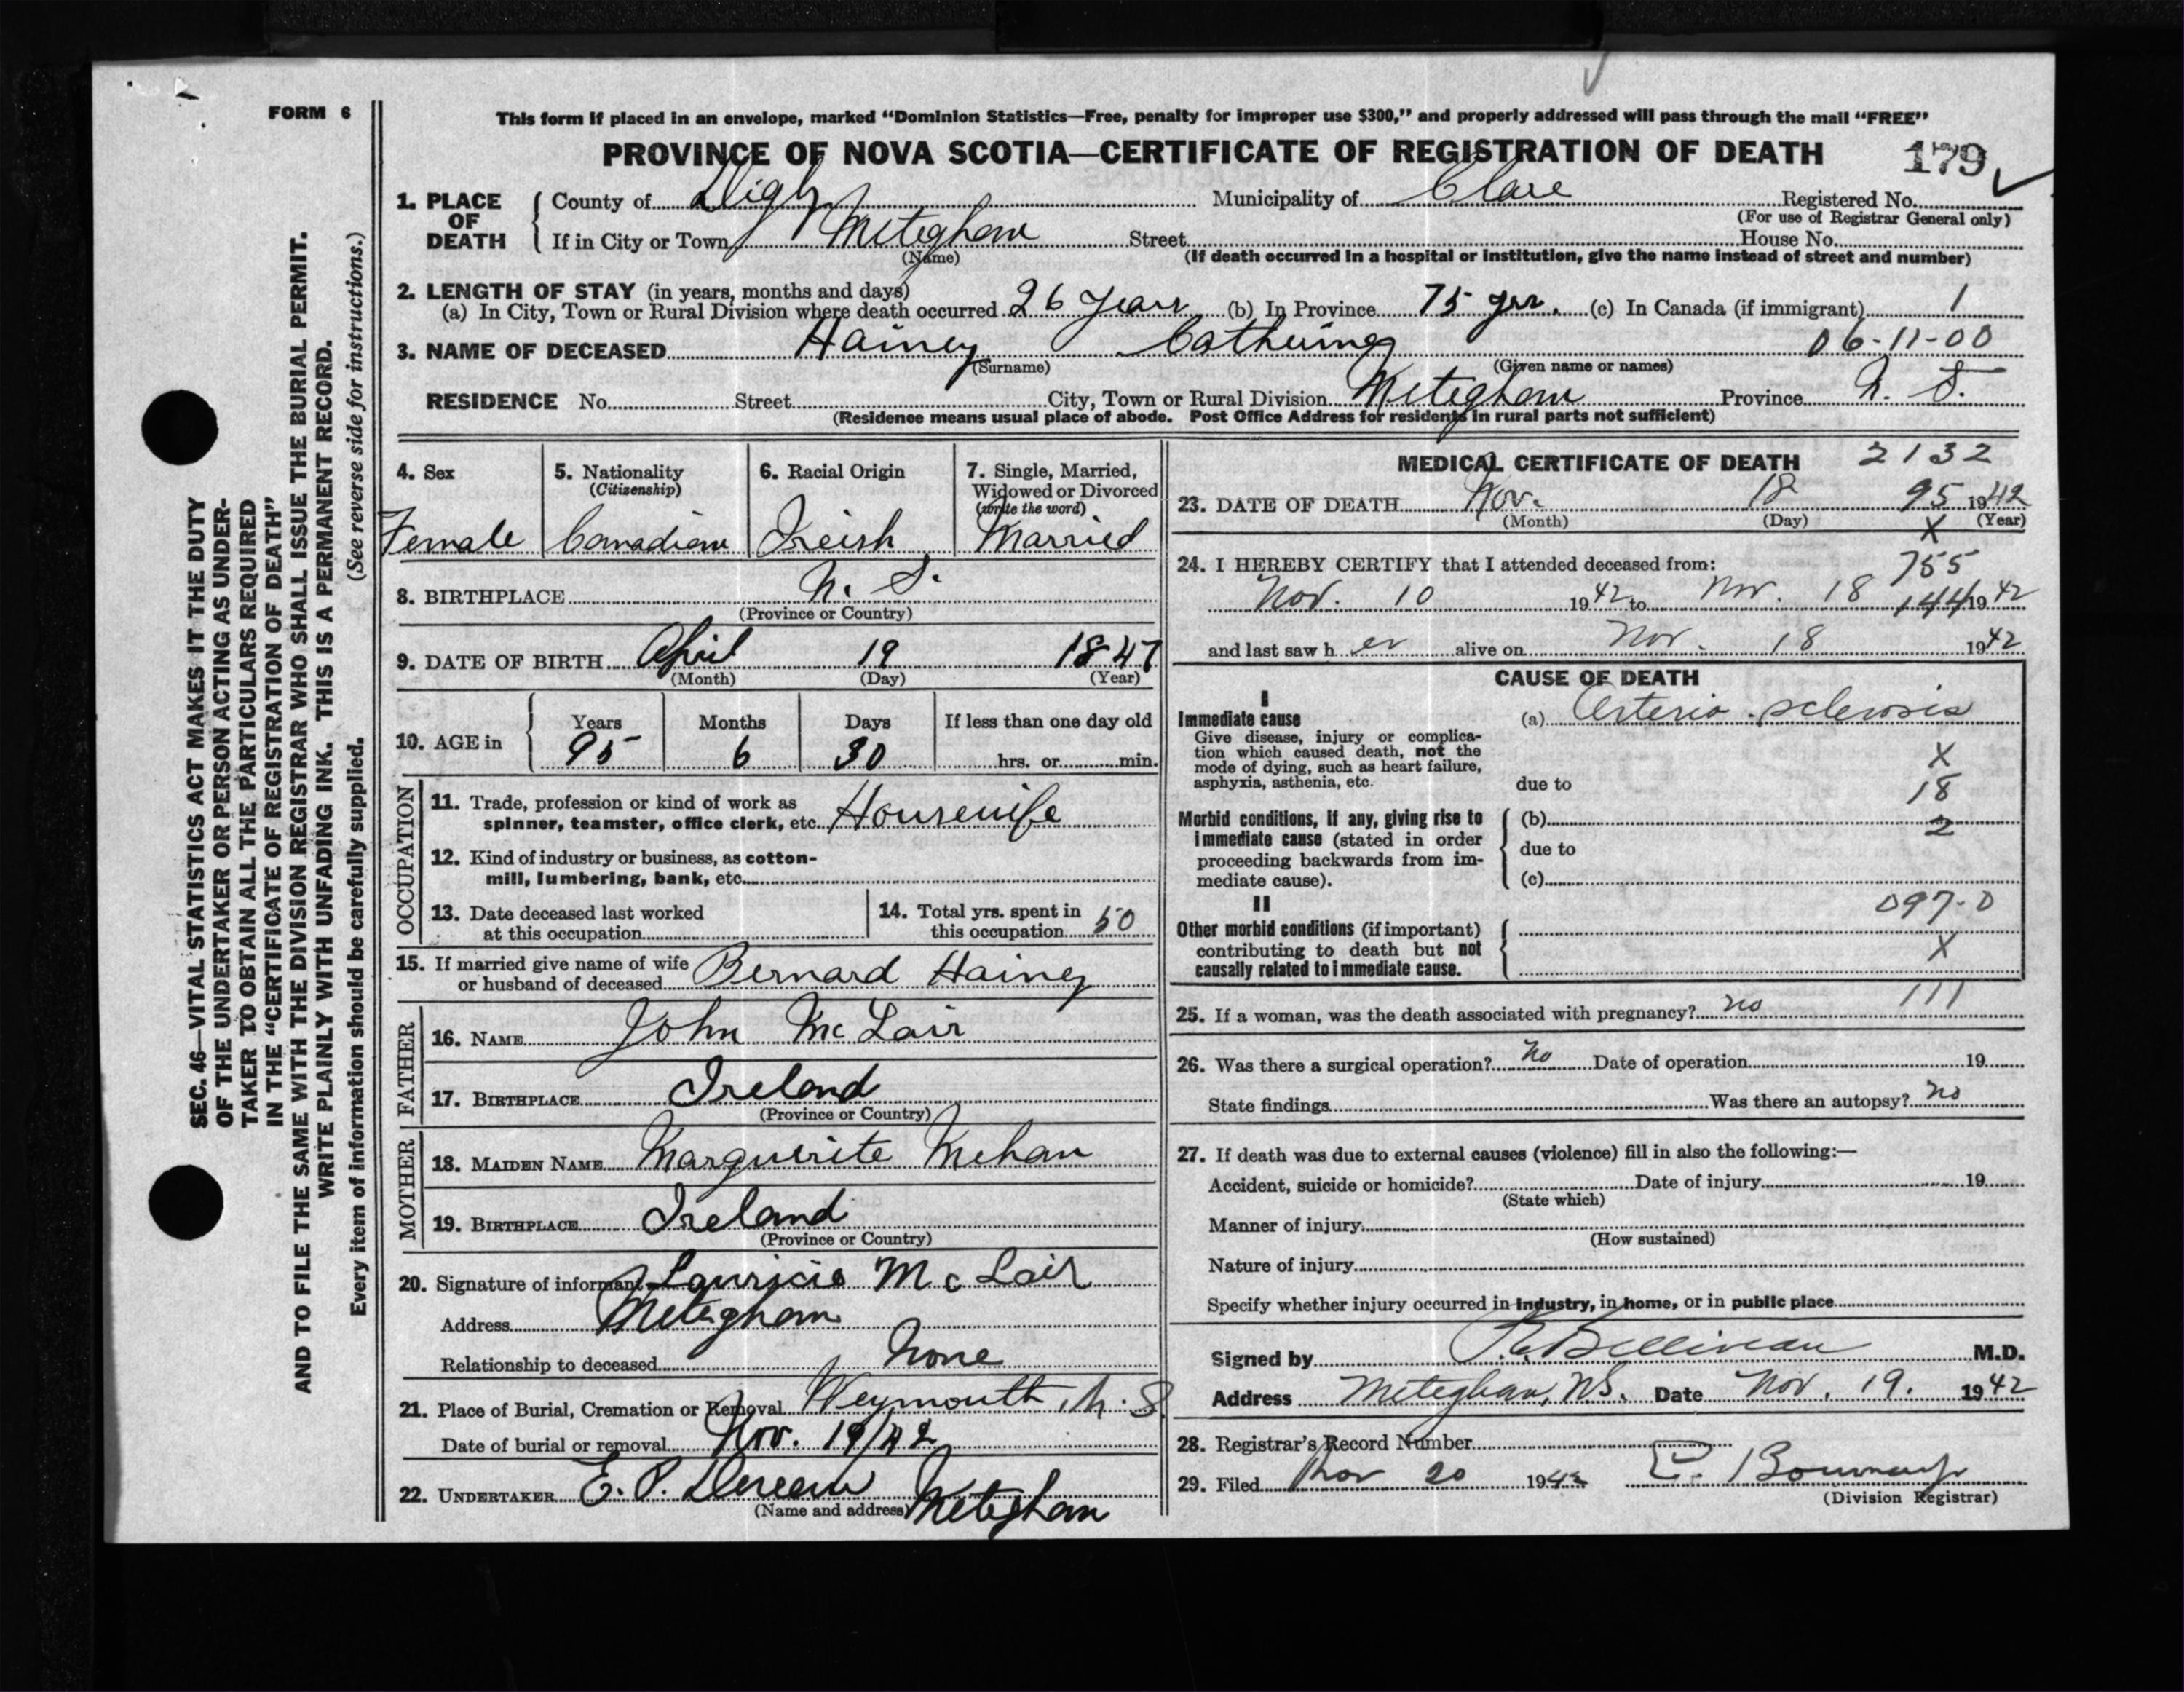 FORM 6
This form if placed in an envelope, marked “Dominion Statistics—Free, penalty for improper use $300,” and properly addressed will pass through the mail “FREE”
PROVINCE OF NOVA SCOTIA—CERTIFICATE OF REGISTRATION OF DEATH 179
1. PLACE OF DEATH
County of Digby Municipality of Clare Registered No.
(For use of Registrar General only)
If in City or Town Meteghan Street House No.
(Name) (If death occurred in a hospital or institution, give the name instead of street and number)
2. LENGTH OF STAY (in years, months and days)
(a) In City, Town or Rural Division where death occurred 26 years (b) In Province 75 yrs. (c) In Canada (if immigrant) 1
3. NAME OF DECEASED Hainey Catherine 06-11-00
(Surname) (Given name or names)
RESIDENCE No. Street City, Town or Rural Division Meteghan Province N. S.
(Residence means usual place of abode. Post Office Address for residents in rural parts not sufficient)
4. Sex
Female
5. Nationality
(Citizenship)
Canadian
6. Racial Origin
Irish
7. Single, Married,
Widowed or Divorced
(write the word)
Married
8. BIRTHPLACE N. S.
(Province or Country)
9. DATE OF BIRTH April 19 1847
(Month) (Day) (Year)
10. AGE in
Years Months Days If less than one day old
95 6 30 hrs. or min.
OCCUPATION
11. Trade, profession or kind of work as
spinner, teamster, office clerk, etc. Housewife
12. Kind of industry or business, as cotton-
mill, lumbering, bank, etc.
13. Date deceased last worked
at this occupation
14. Total yrs. spent in
this occupation 50
15. If married give name of wife
or husband of deceased Bernard Hainey
FATHER
16. NAME John McLair
17. BIRTHPLACE Ireland
(Province or Country)
MOTHER
18. MAIDEN NAME Marguerite Mehan
19. BIRTHPLACE Ireland
(Province or Country)
20. Signature of informant McLair
Address Meteghan
Relationship to deceased None
21. Place of Burial, Cremation or Removal Weymouth, N. S.
Date of burial or removal Nov. 19/42
22. UNDERTAKER E. P.
(Name and address) Meteghan
MEDICAL CERTIFICATE OF DEATH 2132
23. DATE OF DEATH Nov. 18 95 1942
(Month) (Day) X (Year)
24. I HEREBY CERTIFY that I attended deceased from: 755
Nov. 10 1942 to Nov. 18 144 1942
and last saw her alive on Nov. 18 1942
CAUSE OF DEATH
I
Immediate cause
Give disease, injury or complica-
tion which caused death, not the
mode of dying, such as heart failure,
asphyxia, asthenia, etc.
(a) Arterio-sclerosis
X
due to
18
Morbid conditions, if any, giving rise to
immediate cause (stated in order
proceeding backwards from im-
mediate cause).
(b) 2
due to
(c)
II
Other morbid conditions (if important)
contributing to death but not
causally related to immediate cause.
097-0
X
25. If a woman, was the death associated with pregnancy? no 111
26. Was there a surgical operation? No Date of operation 19
State findings Was there an autopsy? no
27. If death was due to external causes (violence) fill in also the following:—
Accident, suicide or homicide? Date of injury 19
(State which)
Manner of injury
(How sustained)
Nature of injury
Specify whether injury occurred in industry, in home, or in public place
Signed by Belliveau M.D.
Address Meteghan, N.S. Date Nov. 19. 1942
28. Registrar's Record Number
29. Filed Nov 20 1942
(Division Registrar)
SEC. 46—VITAL STATISTICS ACT MAKES IT THE DUTY
OF THE UNDERTAKER OR PERSON ACTING AS UNDER-
TAKER TO OBTAIN ALL THE PARTICULARS REQUIRED
IN THE “CERTIFICATE OF REGISTRATION OF DEATH”
AND TO FILE THE SAME WITH THE DIVISION REGISTRAR WHO SHALL ISSUE THE BURIAL PERMIT.
WRITE PLAINLY WITH UNFADING INK. THIS IS A PERMANENT RECORD.
Every item of information should be carefully supplied. (See reverse side for instructions.)